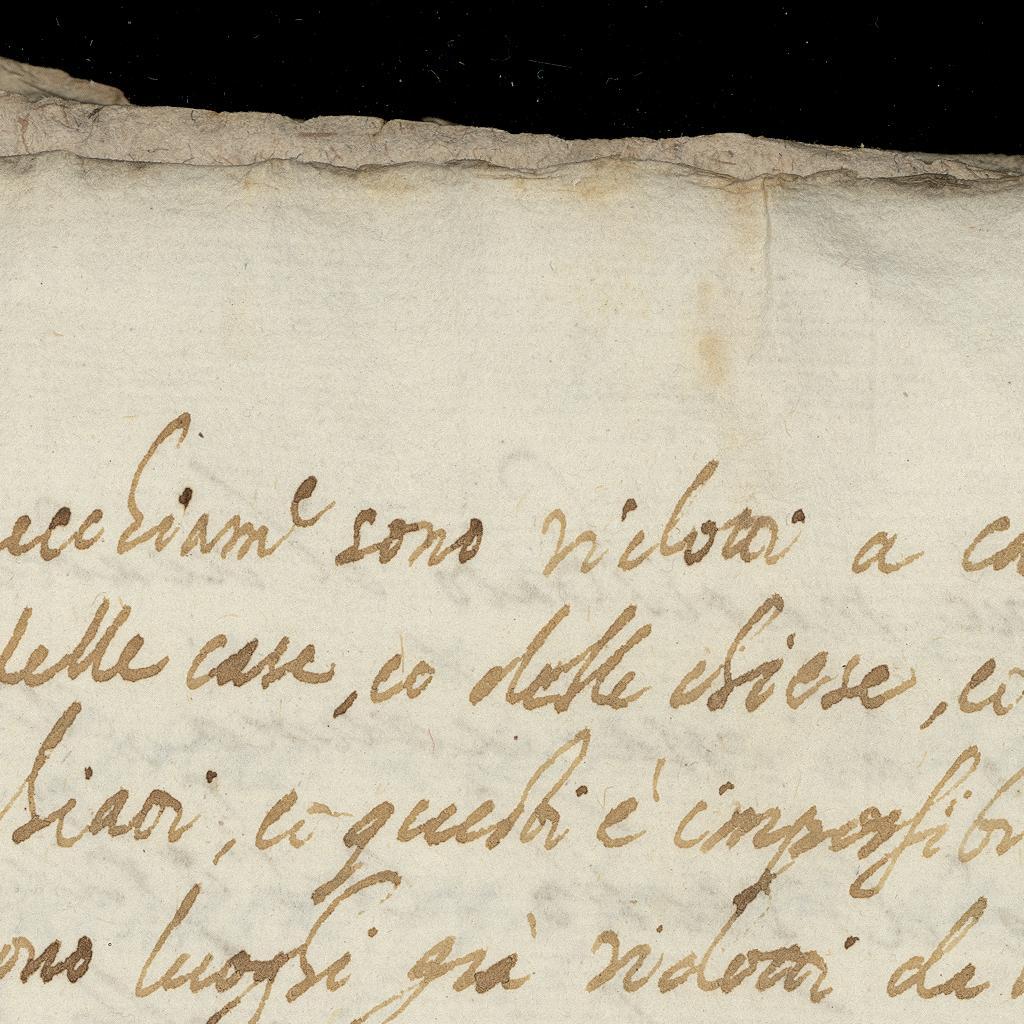 ecchiam.e sono ridotti a ca
delle case, et delle chiese, et
hiari, et questi è impossibi
ono luoghi già ridotti da